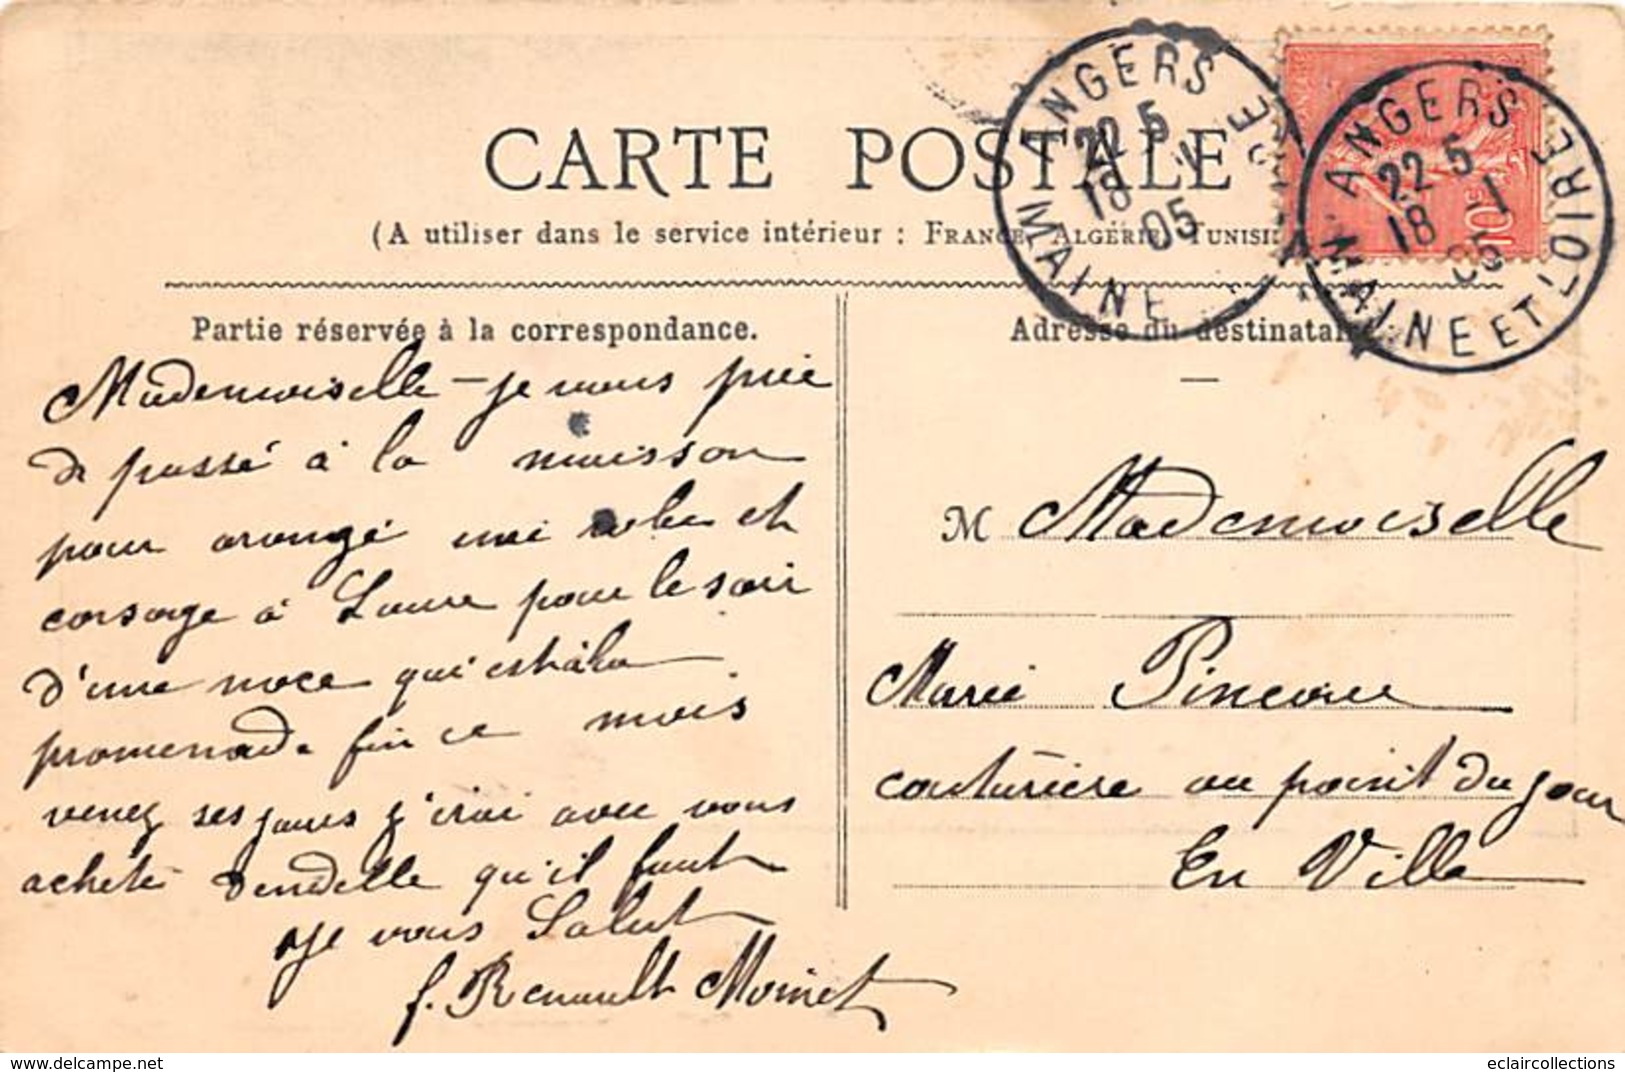 CARTE POSTALE
(A utiliser dans le service intérieur : FRANCE, ALGÉRIE, TUNISIE
ANGERS
22 5
18 -1
05
MAINE
ANGERS
22 5
18 -1
05
MAINE ET LOIRE
10
Partie réservée à la correspondance.
Mademoiselle - je vous prie
de passé à la maisson
pour arangé une robe et
corsage à Laure pour le soir
d'une noce qui est à la
promenade fin ce mois
venez ses jours j'irai avec vous
acheté dendelle qu'il faut
je vous Salut
f. Renault Moinet
Adresse du destinataire
M Mademoiselle
Marie Pineau
couturière au point du jour
En Ville
delcampe.net
eclaircollections